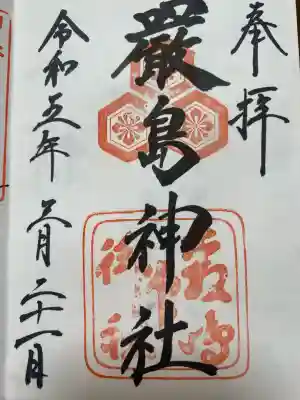 奉拝
厳島神社
令和五年三月二十一日